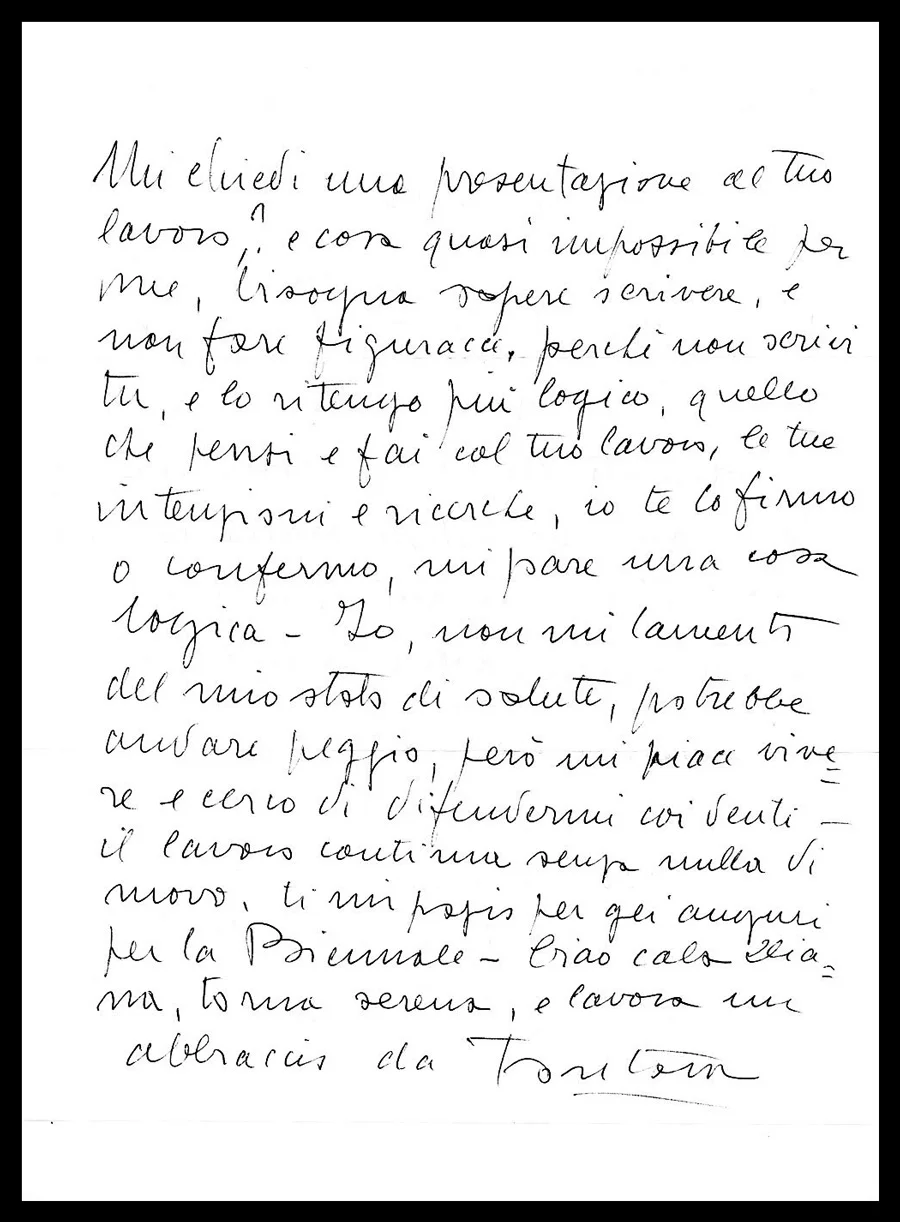 Mi chiedi una presentazione al tuo
lavoro? e cosa quasi impossibile per
me, bisogna sapere scrivere, e
non fare figuracce, perché non scrivi
tu, e lo ritengo più logico, quello
che pensi e fai col tuo lavoro, le tue
intenzioni e ricerche, io te lo firmo
o confermo, mi pare una cosa
logica - Io, non mi lamento
del mio stato di salute, potrebbe
andare peggio, però mi piace vive=
re e cerco di difendermi coi denti -
il lavoro continua senza nulla di
nuovo, ti per gli auguri
per la Biennale - Ciao cara Dia=
na, torna serena, e lavora un
abbraccio da Fontana